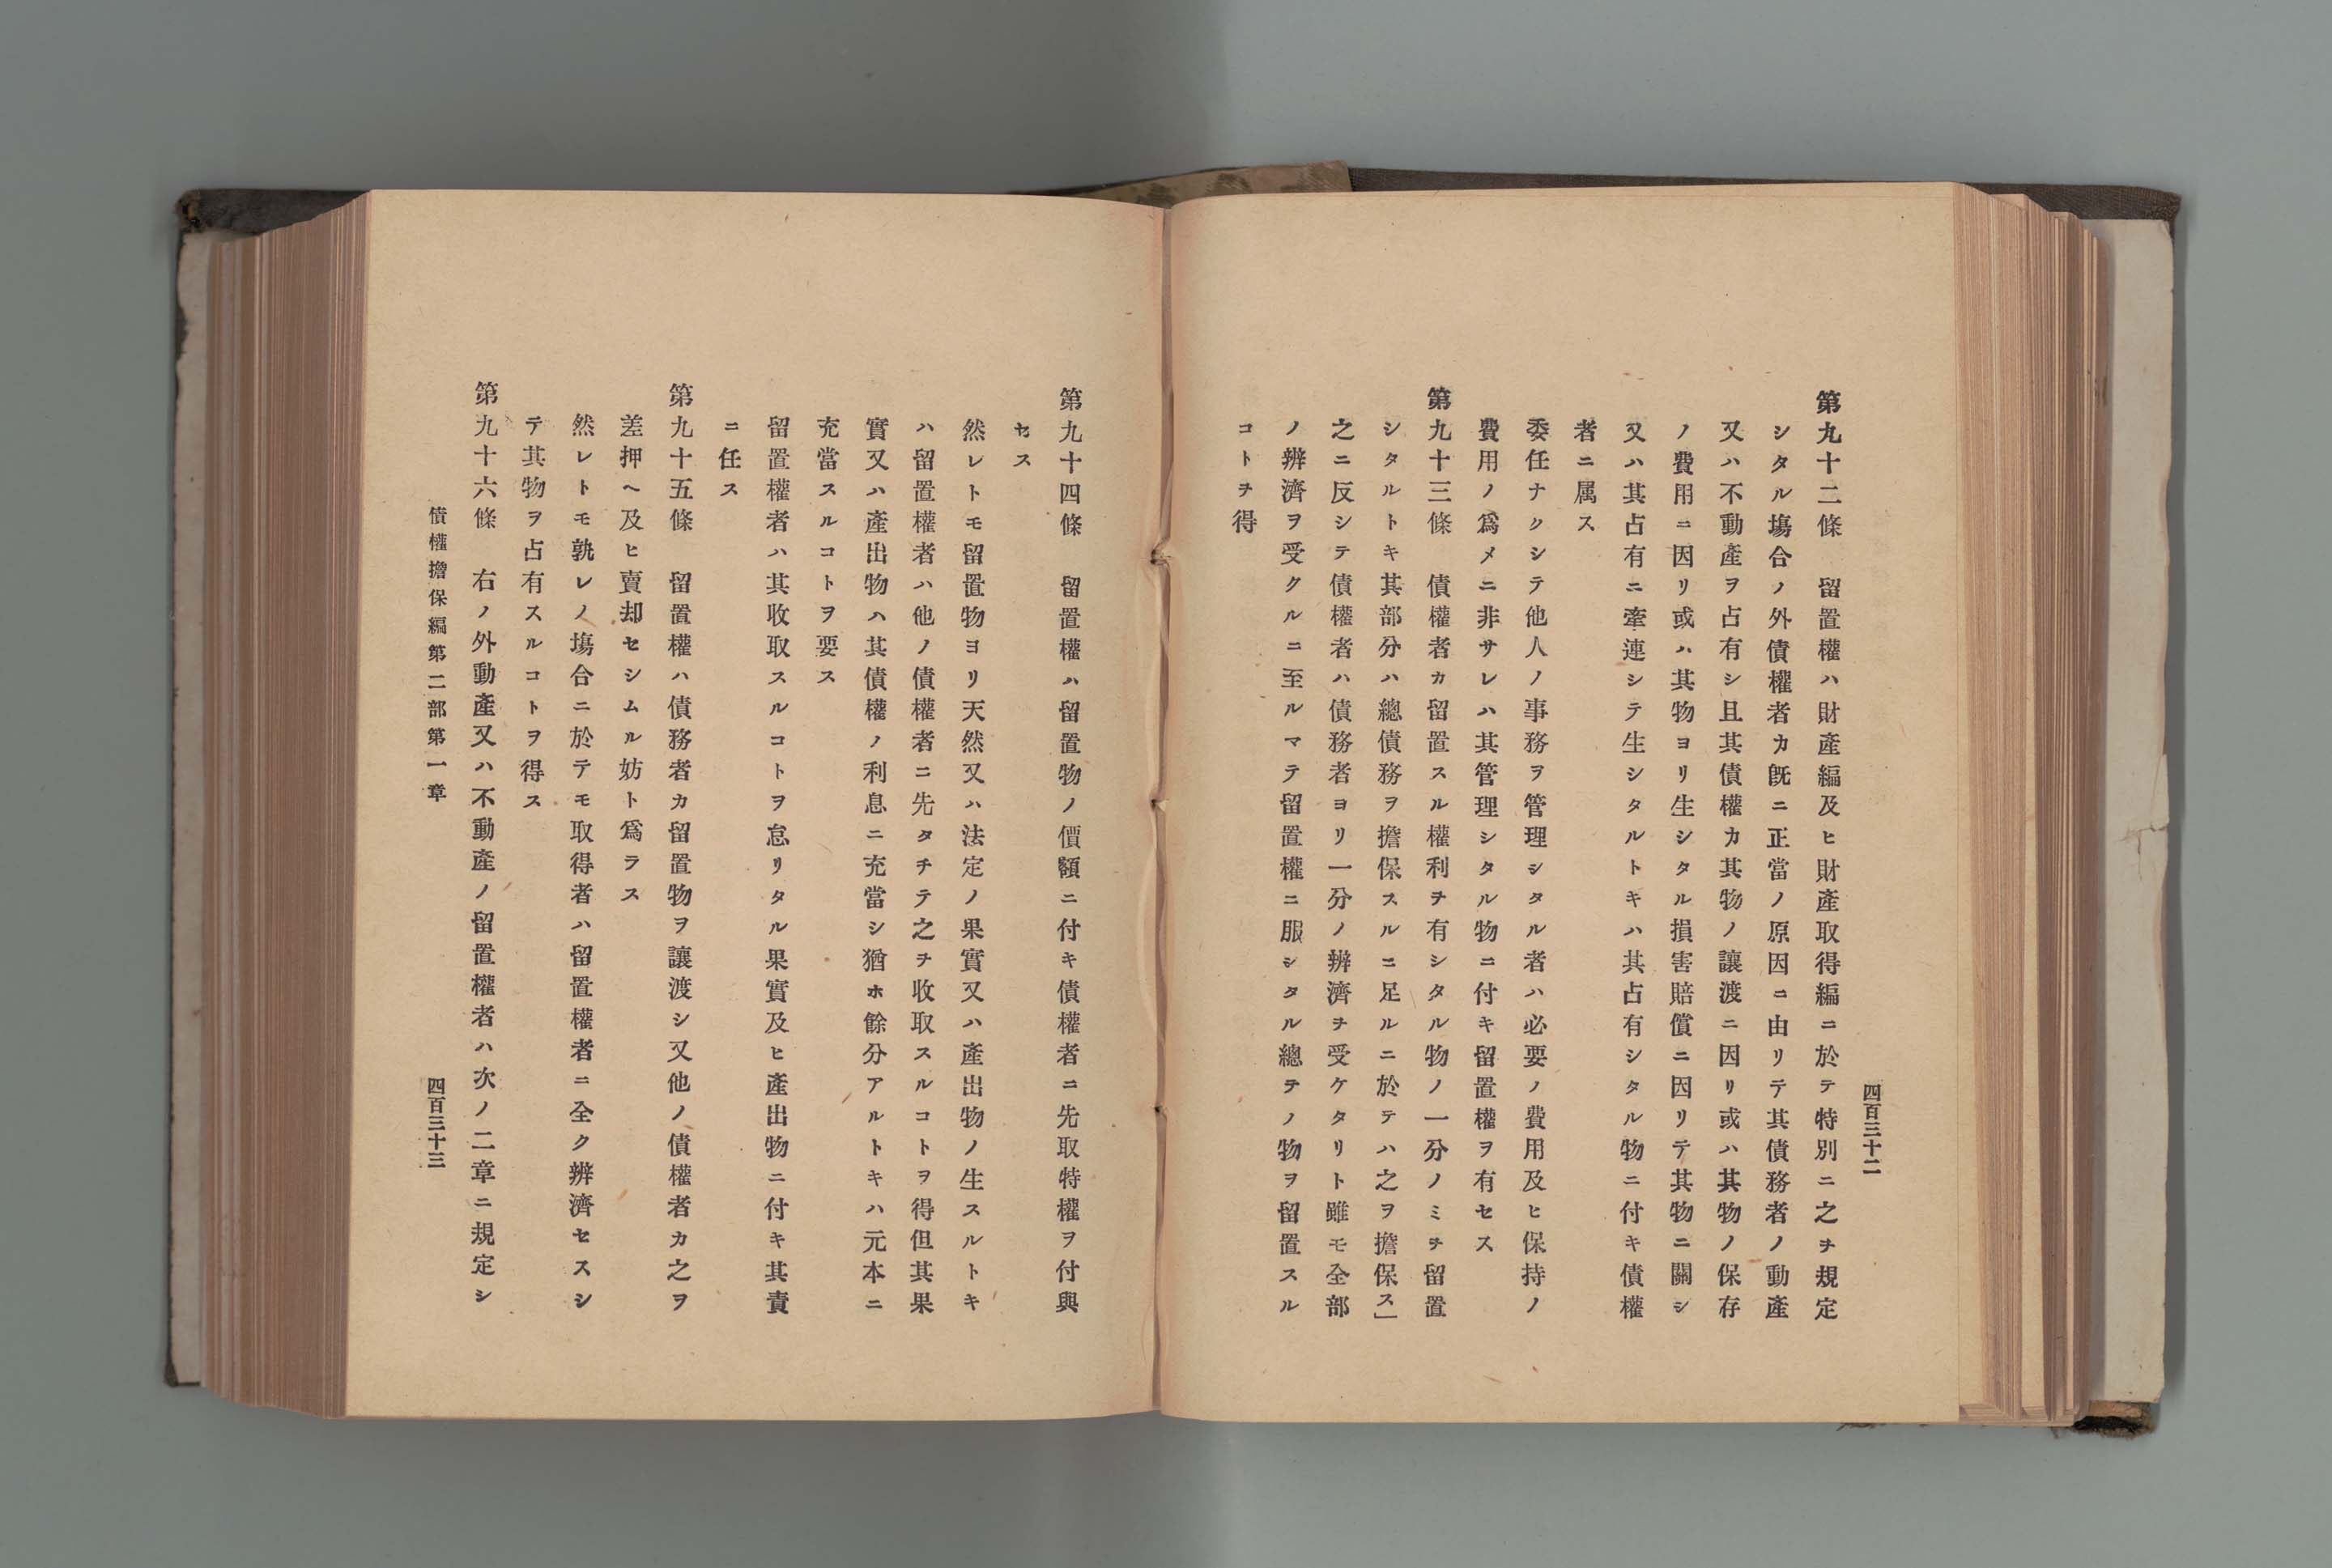 四百三十二
第九十二條　留置權ハ財產編及ヒ財產取得編ニ於テ特別ニ之ヲ規定
シタル塲合ノ外債權者カ既ニ正當ノ原因ニ由リテ其債務者ノ動產
又ハ不動產ヲ占有シ且其債權カ其物ノ讓渡ニ因リ或ハ其物ノ保存
ノ費用ニ因リ或ハ其物ヨリ生シタル損害賠償ニ因リテ其物ニ關シ
又ハ其占有ニ牽連シテ生シタルトキハ其占有シタル物ニ付キ債權
者ニ属ス
委任ナクシテ他人ノ事務ヲ管理シタル者ハ必要ノ費用及ヒ保持ノ
費用ノ爲メニ非サレハ其管理シタル物ニ付キ留置權ヲ有セス
第九十三條　債權者カ留置スル權利ヲ有シタル物ノ一分ノミヲ留置
シタルトキ其部分ハ總債務ヲ擔保スルニ足ルニ於テハ之ヲ擔保ス」
之ニ反シテ債權者ハ債務者ヨリ一分ノ辨濟ヲ受ケタリト雖モ全部
ノ辨濟ヲ受クルニ至ルマテ留置權ニ服シタル總テノ物ヲ留置スル
コトヲ得
第九十四條　留置權ハ留置物ノ價額ニ付キ債權者ニ先取特權ヲ付與
セス
然レトモ留置物ヨリ天然又ハ法定ノ果實又ハ產出物ノ生スルトキ
ハ留置權者ハ他ノ債權者ニ先タチテ之ヲ收取スルコトヲ得但其果
實又ハ產出物ハ其債權ノ利息ニ充當シ猶ホ餘分アルトキハ元本ニ
充當スルコトヲ要ス
留置權者ハ其收取スルコトヲ怠リタル果實及ヒ產出物ニ付キ其責
ニ任ス
第九十五條　留置權ハ債務者カ留置物ヲ讓渡シ又他ノ債權者カ之ヲ
差押ヘ及ヒ賣却セシムル妨ト爲ラス
然レトモ孰レノ塲合ニ於テモ取得者ハ留置權者ニ全ク辨濟セスシ
テ其物ヲ占有スルコトヲ得ス
第九十六條　右ノ外動產又ハ不動產ノ留置權者ハ次ノ二章ニ規定シ
債權擔保編第二部第一章
四百三十三